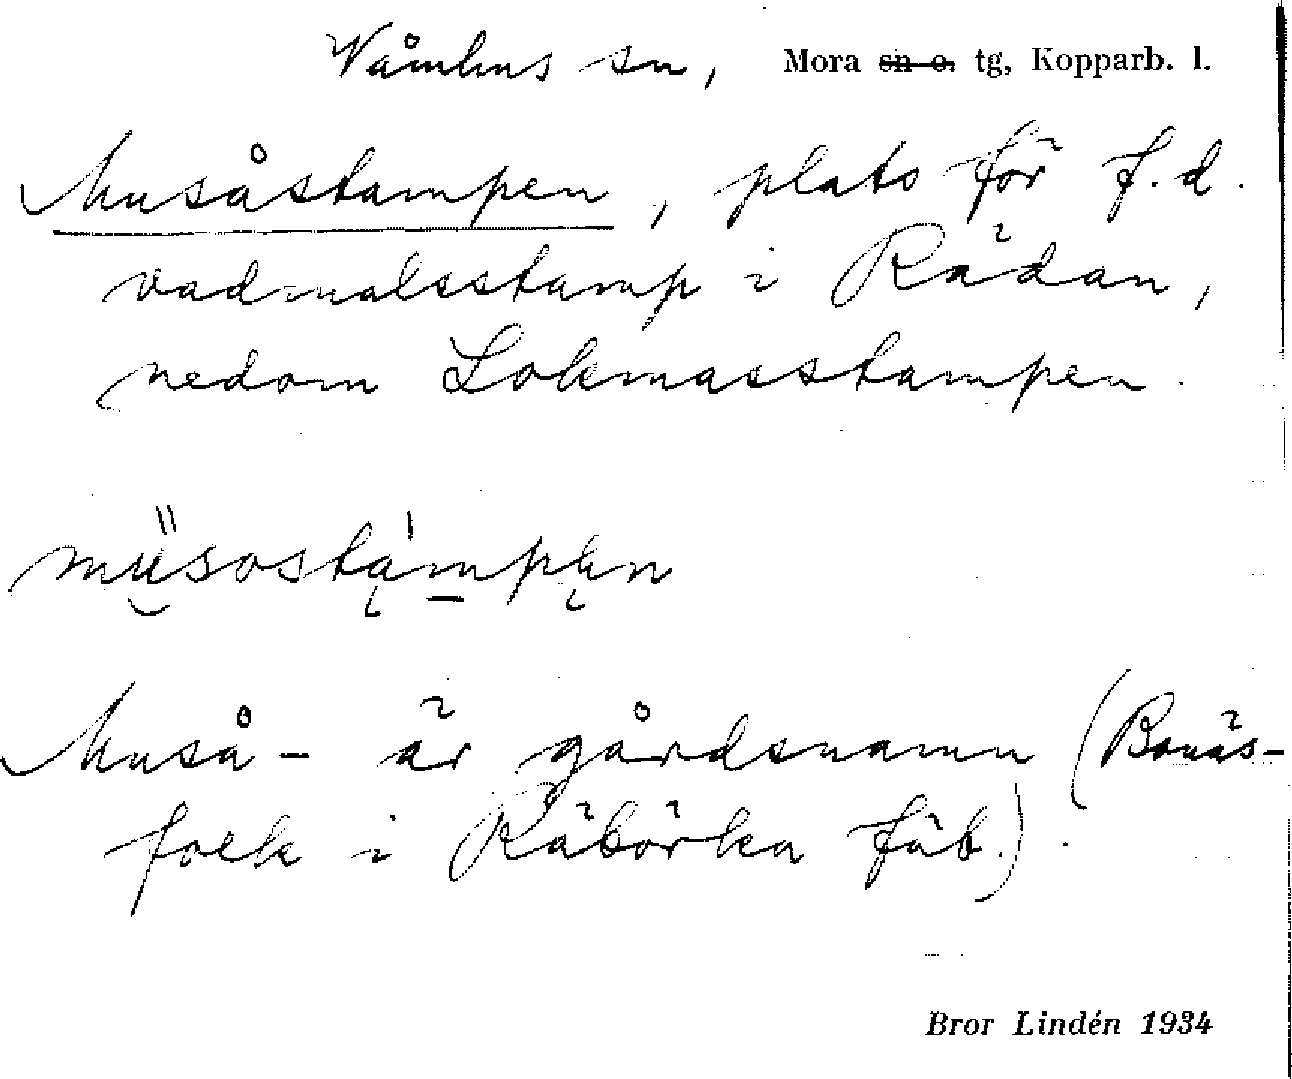 Våmhus sn, Mora ~~sn o.~~ tg, Kopparb. l.
Musåstampen, plats för f.d.
vadmalsstamp i Rädan,
nedom Lokmasstampen.
Muså- är gårdsnamn (Bonäs-
folk i Räbörka fäb.).
Bror Lindén 1934